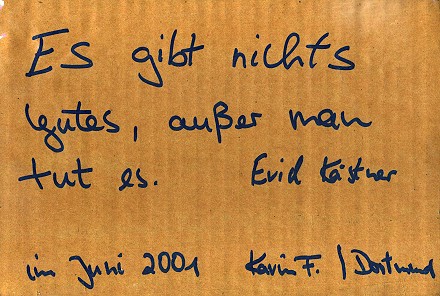 Es gibt nichts
Gutes, außer man
tut es. Erich Kästner
im Juni 2001 Karin F. / Dortmund